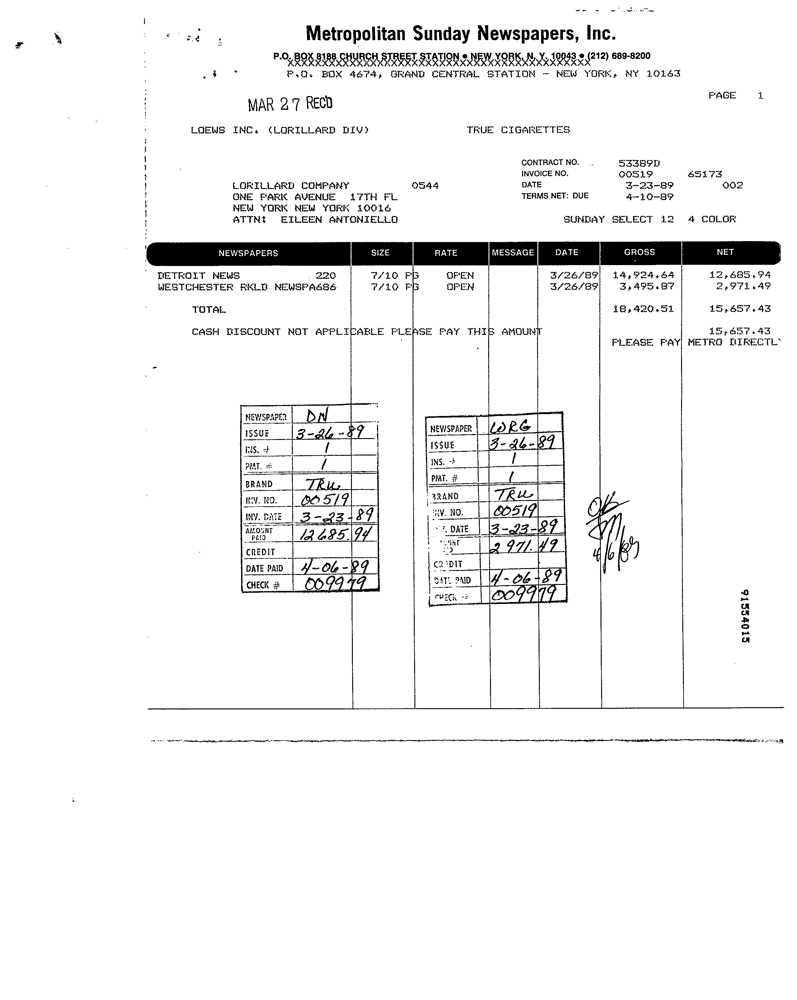 Metropolitan Sunday Newspapers, Inc.
P.O. BOX 8188 CHURCH STREET STATION • NEW YORK, N. Y. 10043 • (212) 689-8200
XXXXXXXXXXXXXXXXXXXXXXXXXXXXXXXXXXXXXXXXXXX
P.O. BOX 4674, GRAND CENTRAL STATION - NEW YORK, NY 10163
MAR 27 REC'D
PAGE 1
LOEWS INC. (LORILLARD DIV) TRUE CIGARETTES
CONTRACT NO. 53389D
INVOICE NO. 00519 65173
LORILLARD COMPANY 0544 DATE 3-23-89 002
ONE PARK AVENUE 17TH FL TERMS NET: DUE 4-10-89
NEW YORK NEW YORK 10016
ATTN: EILEEN ANTONIELLO SUNDAY SELECT 12 4 COLOR
NEWSPAPERS SIZE RATE MESSAGE DATE GROSS NET
DETROIT NEWS 220 7/10 PG OPEN 3/26/89 14,924.64 12,685.94
WESTCHESTER RKLD NEWSPA686 7/10 PG OPEN 3/26/89 3,495.87 2,971.49
TOTAL 18,420.51 15,657.43
CASH DISCOUNT NOT APPLICABLE PLEASE PAY THIS AMOUNT 15,657.43
PLEASE PAY METRO DIRECTL
NEWSPAPER DN
ISSUE 3-26-89
INS. # 1
PMT. # 1
BRAND TRU
INV. NO. 00519
INV. DATE 3-23-89
AMOUNT PAID 12685.94
CREDIT
DATE PAID 4-06-89
CHECK # 009979
NEWSPAPER WRG
ISSUE 3-26-89
INS. # 1
PMT. # 1
BRAND TRU
INV. NO. 00519
DATE 3-23-89
2971.49
CREDIT
DATE PAID 4-06-89
CHECK # 009979
OK
4/6/89
91554015